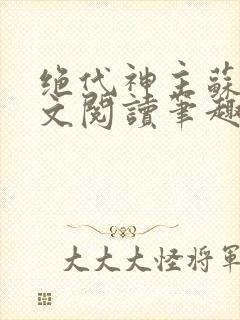 绝代神主蘇
文閱讀筆趣
大大大怪将軍